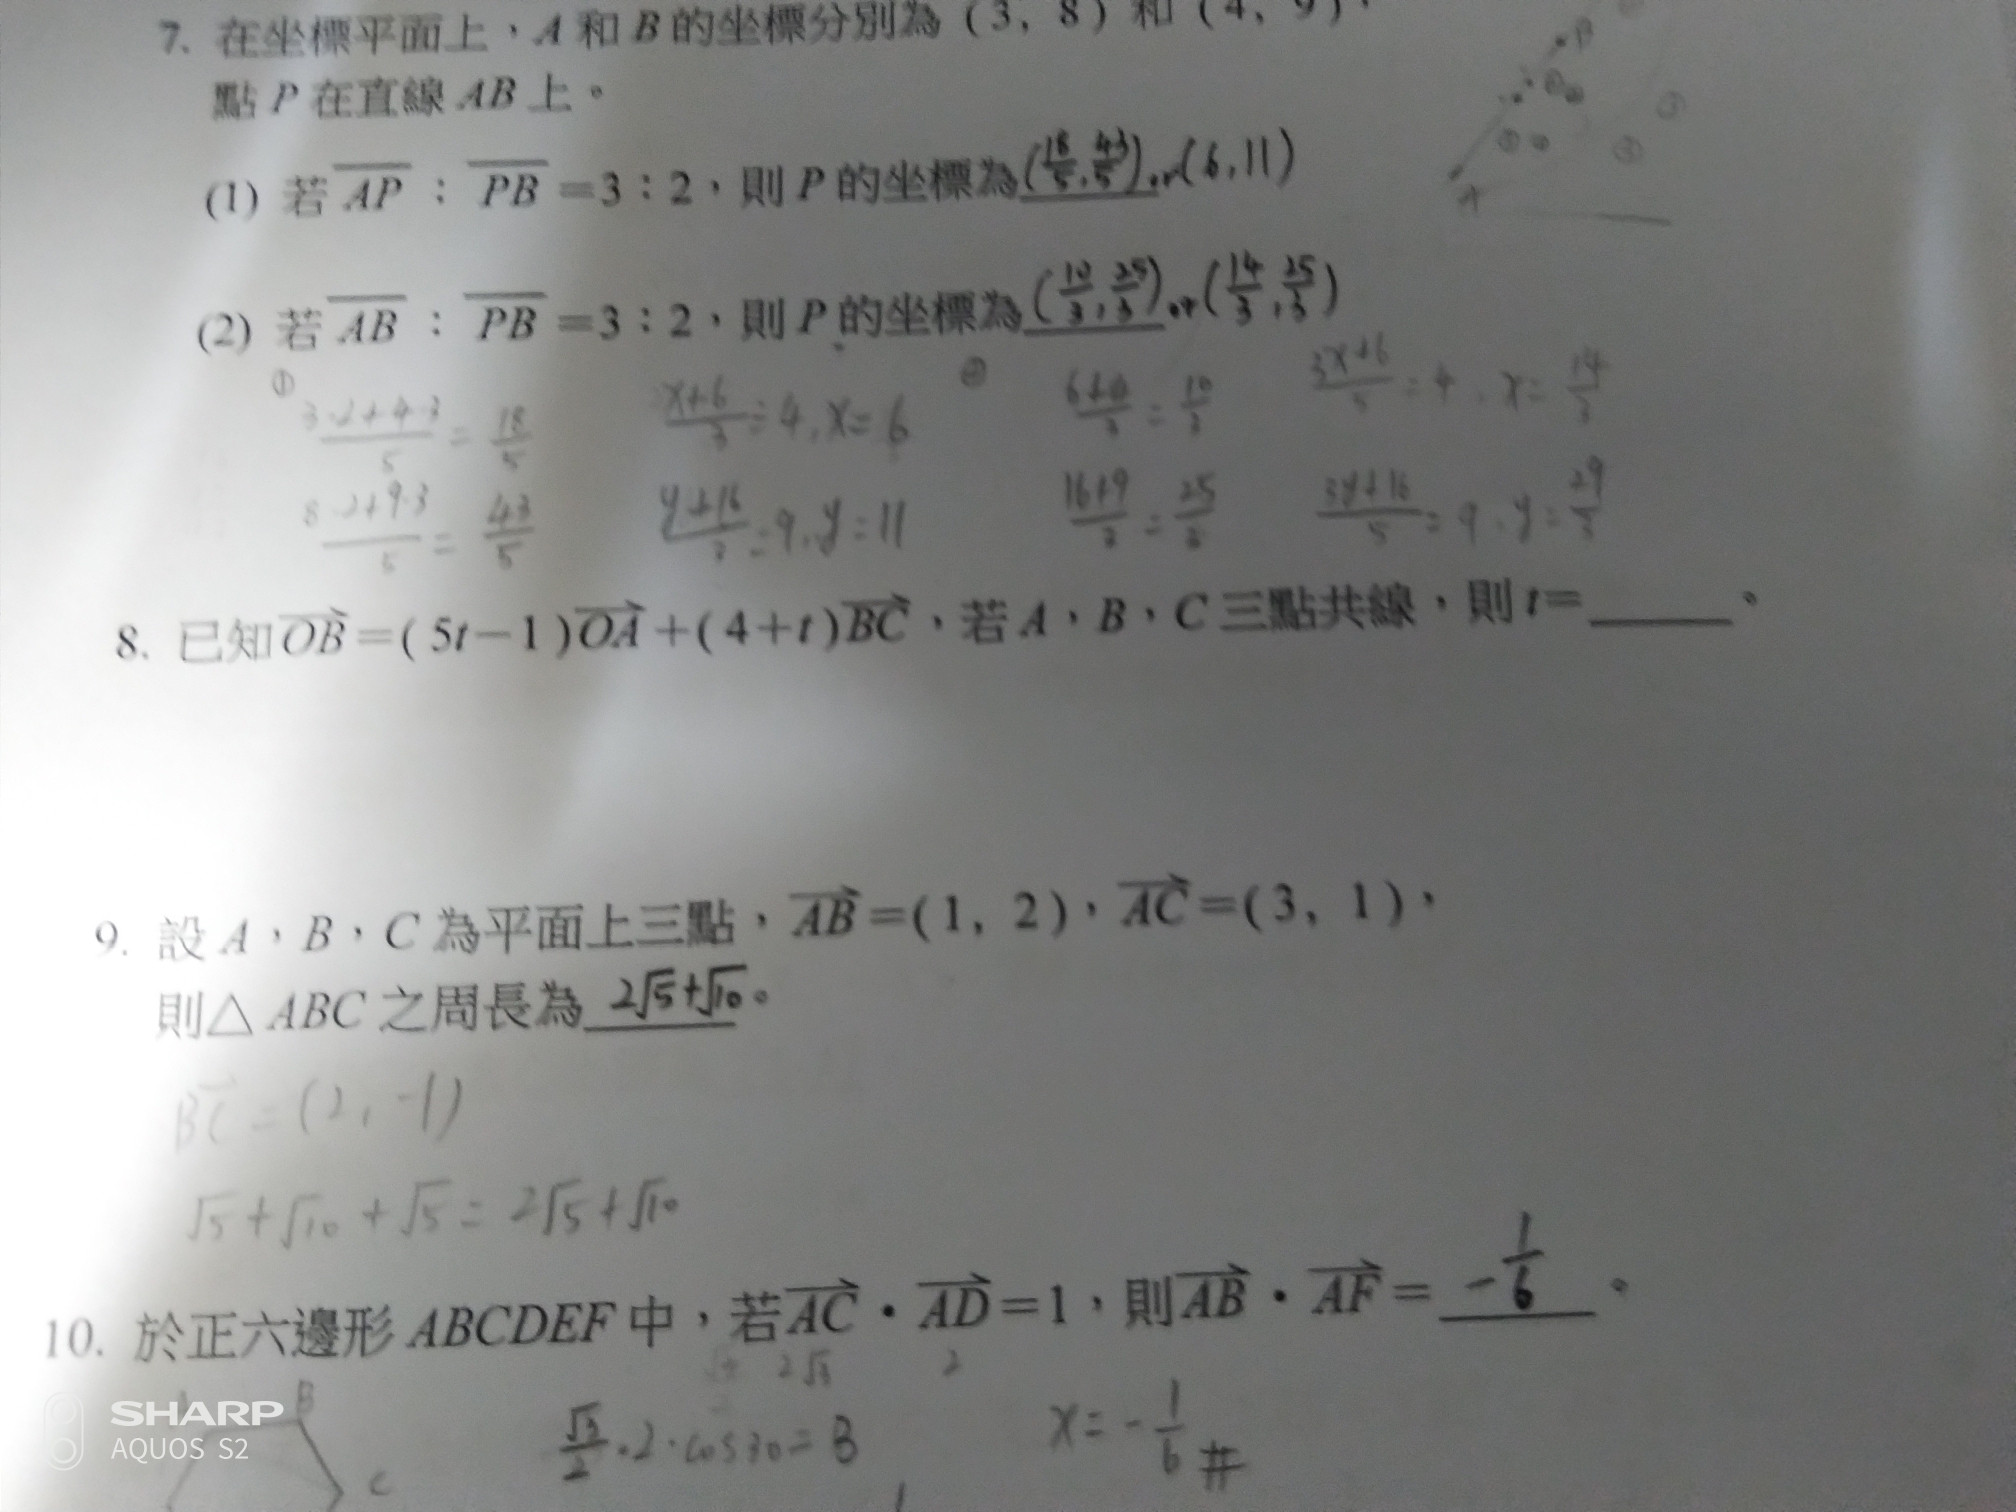 7. 在坐標平面上，A 和 B 的坐標分別為 (3, 8) 和 (4, 9)，
點 P 在直線 AB 上。
B
A
(1) 若 AP : PB =3：2，則 P 的坐標為 (18/5, 43/5) or (6,11)
(2) 若 AB : PB =3：2，則 P 的坐標為 (10/3, 25/3) or (14/3, 25/3)
① (3·2+4·3)/5 = 18/5 (x+6)/3 = 4, x=6 ② (6+4)/3 = 10/3 (3x+6)/5 = 4, x= 14/3
(8·2+9·3)/5 = 43/5 (y+16)/3 = 9, y=11 (16+9)/3 = 25/3 (3y+16)/5 = 9, y= 29/3
8. 已知 OB =(5t−1) OA +(4+t) BC，若 A，B，C 三點共線，則 t=____。
9. 設 A，B，C 為平面上三點，AB =(1, 2)，AC =(3, 1)，
則△ABC 之周長為 2√5+√10。
BC = (2, -1)
√5+√10+√5= 2√5+√10
10. 於正六邊形 ABCDEF 中，若 AC · AD =1，則 AB · AF = -1/6。
2√3 2
B
C
√3/2 ·2·cos30= 3 x= -1/6 #
SHARP
AQUOS S2